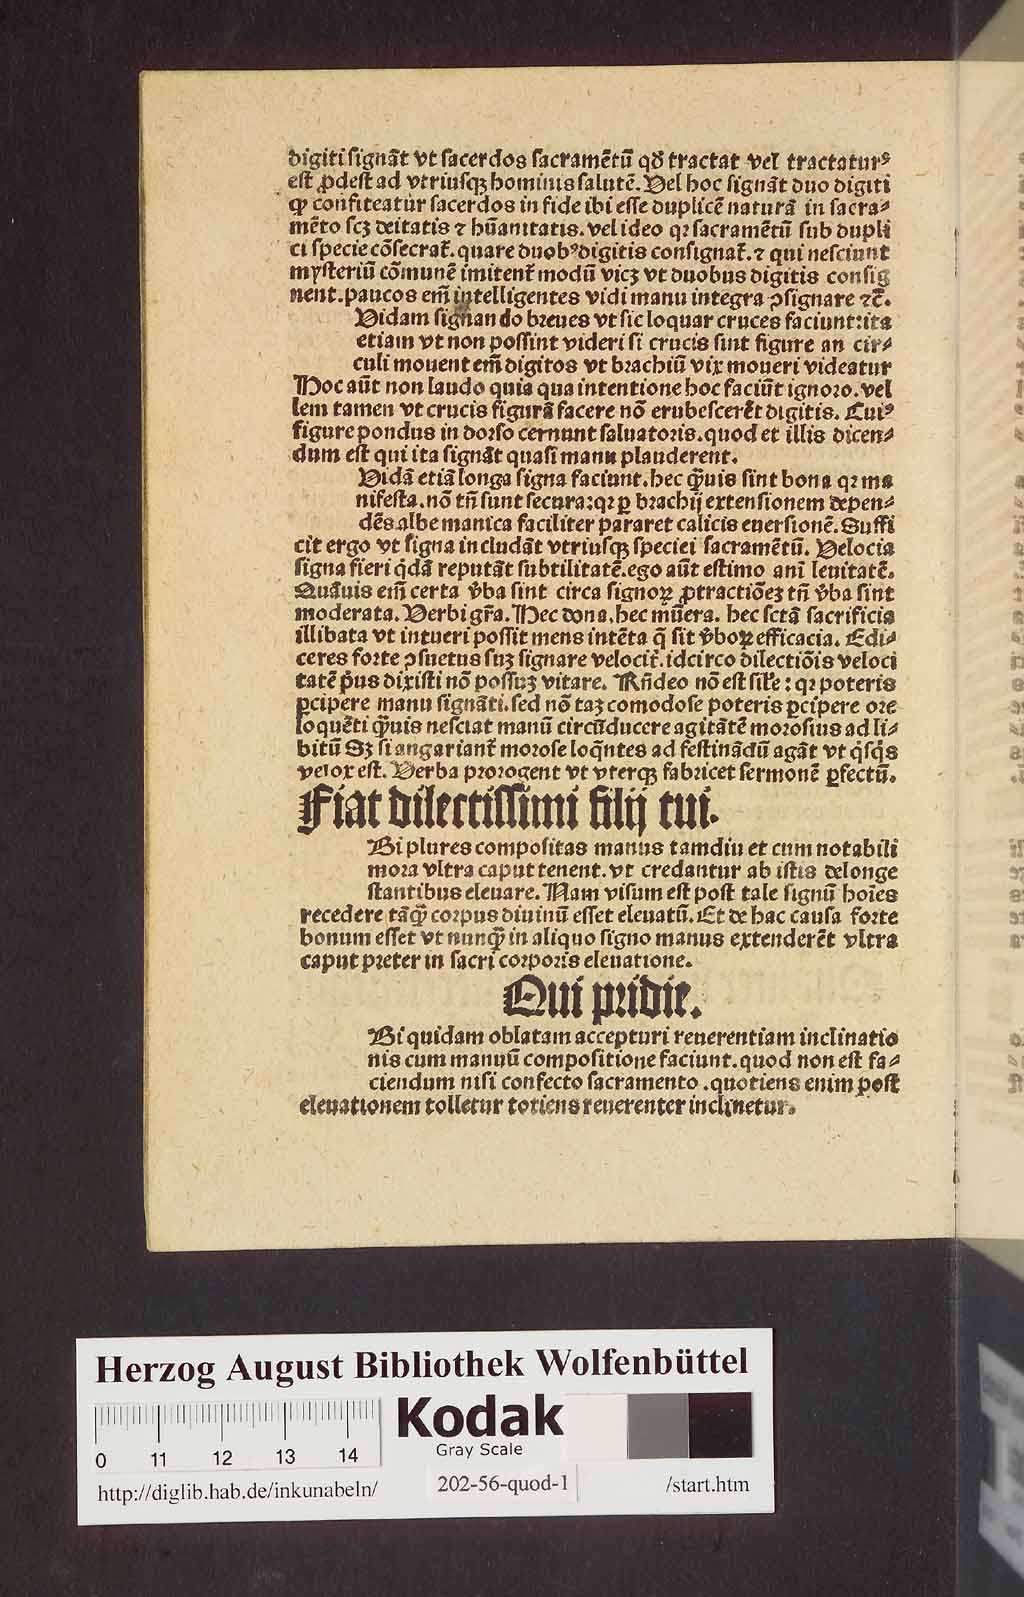 digiti signāt vt sacerdos sacramētū qđ tractat vel tractaturꝰ
est ꝓdest ad vtriusqꝫ hominis salutē. Vel hoc signāt duo digiti
ꝙ confiteatur sacerdos in fide ibi esse duplicē naturā in sacra⸗
mēto scꝫ deitatis ⁊ hūanitatis. vel ideo qꝛ sacramētū sub dupli
ci specie cōsecrat̄. quare duobꝰ digitis consignat̄. ⁊ qui nesciunt
mysteriū cōmunē imitent̄ modū vicꝫ vt duobus digitis consig
nent. paucos em̄ intelligentes vidi manu integra ꝯsignare ⁊c̄.
Vidam signando breues vt sic loquar cruces faciunt: ita
etiam vt non possint videri si crucis sint figure an cir⸗
culi mouent em̄ digitos vt brachiū vix moueri videatur
Hoc aūt non laudo quia qua intentione hoc faciūt ignoro. vel
lem tamen vt crucis figurā facere nō erubescerēt digitis. Cuiꝰ
figure pondus in dorso cernunt saluatoris. quod et illis dicen⸗
dum est qui ita signāt quasi manu plauderent.
Vidā etiā longa signa faciunt. hec q̄uis sint bona qꝛ ma
nifesta. nō tn̄ sunt secura: qꝛ ꝑ brachij extensionem depen⸗
dēs albe manica faciliter pararet calicis euersionē. Suffi
cit ergo vt signa includāt vtriusqꝫ speciei sacramētū. Velocia
signa fieri q̇dā reputāt subtilitatē. ego aūt estimo ani leuitatē.
Quāuis em̄ certa v̄ba sint circa signoꝝ ꝓtractiōeꝫ tn̄ v̄ba sint
moderata. Verbi gr̄a. Hec dona. hec mūera. hec sctā sacrificia
illibata vt intueri possit mens intēta q̄ sit v̄boꝝ efficacia. Sꝫ di⸗
ceres forte ꝯsuetus suꝫ signare velocit̄. idcirco dilectiōis veloci
tatē p̄us dixisti nō possuꝫ vitare. Rn̄deo nō est sil̄e: qꝛ poteris
ꝑcipere manu signāti. sed nō taꝫ comodose poteris ꝑcipere ore
loquēti q̄uis nesciat manū circūducere agitātē morosius ad li⸗
bitū Sꝫ si angariant̄ morose loq̄ntes ad festinādū agāt vt q̇sq̇s
velox est. Verba prorogent vt vterqꝫ fabricet sermonē ꝑfectū.
Fiat dilectissimi filij tui.
Bi plures compositas manus tamdiu et cum notabili
mora vltra caput tenent. vt credantur ab istis delonge
stantibus eleuare. Nam visum est post tale signū hoīes
recedere tāq̄ corpus diuinū esset eleuatū. Et de hac causa forte
bonum esset vt nunq̄ in aliquo signo manus extenderēt vltra
caput preter in sacri corporis eleuatione.
Qui pridie.
Bi quidam oblatam accepturi reuerentiam inclinatio
nis cum manuū compositione faciunt. quod non est fa⸗
ciendum nisi confecto sacramento. quotiens enim post
eleuationem tolletur totiens reuerenter inclinetur.
Herzog August Bibliothek Wolfenbüttel
Kodak
Gray Scale
0 11 12 13 14
http://diglib.hab.de/inkunabeln/ 202-56-quod-1 /start.htm